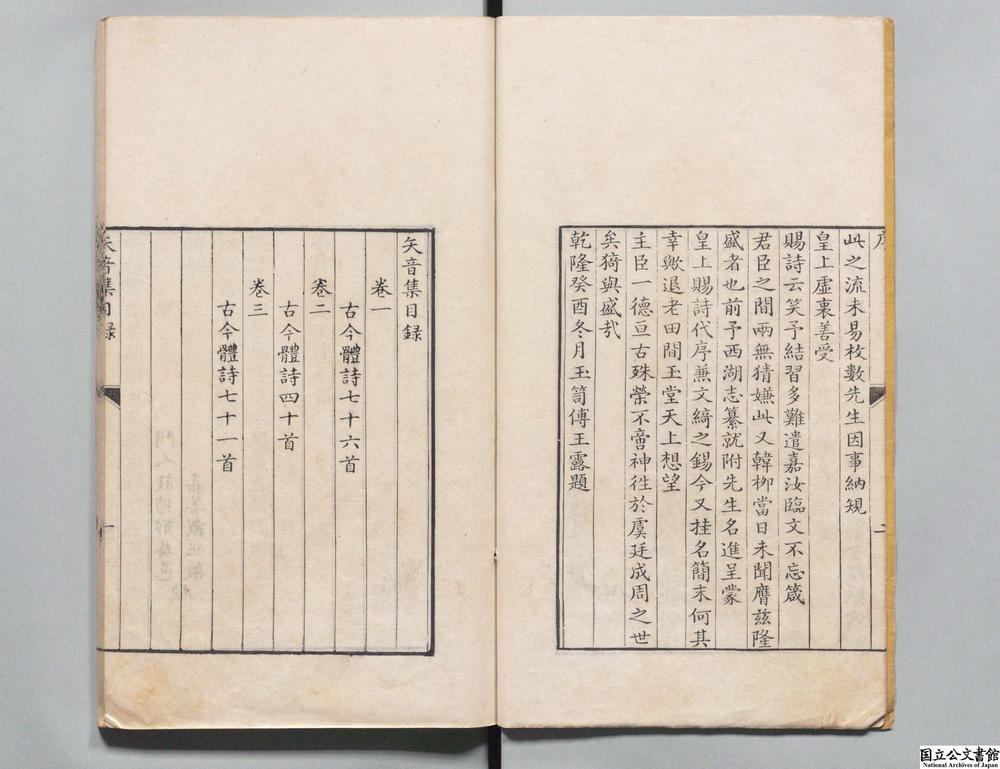 此之流未易枚數先生因事納規
皇上虛裏善受
賜詩云笑予結習多難遣嘉汝臨文不忘箴
君臣之間兩無猜嫌此又韓栁當日未聞膺茲隆
盛者也前予西湖志纂就附先生名進呈蒙
皇上賜詩代序蒹文綺之錫今又挂名簡末何其
幸歟退老田間玉堂天上想望
主臣一德亘古殊榮不啻神徃於虞廷成周之世
矣猗與盛㢤
乾隆癸酉冬月玉笥傅王露題
二
矢音集目録
卷一
古今體詩七十六首
卷二
古今體詩四十首
卷三
古今體詩七十一首
矢音集目録
一
国立公文書館
National Archives of Japan